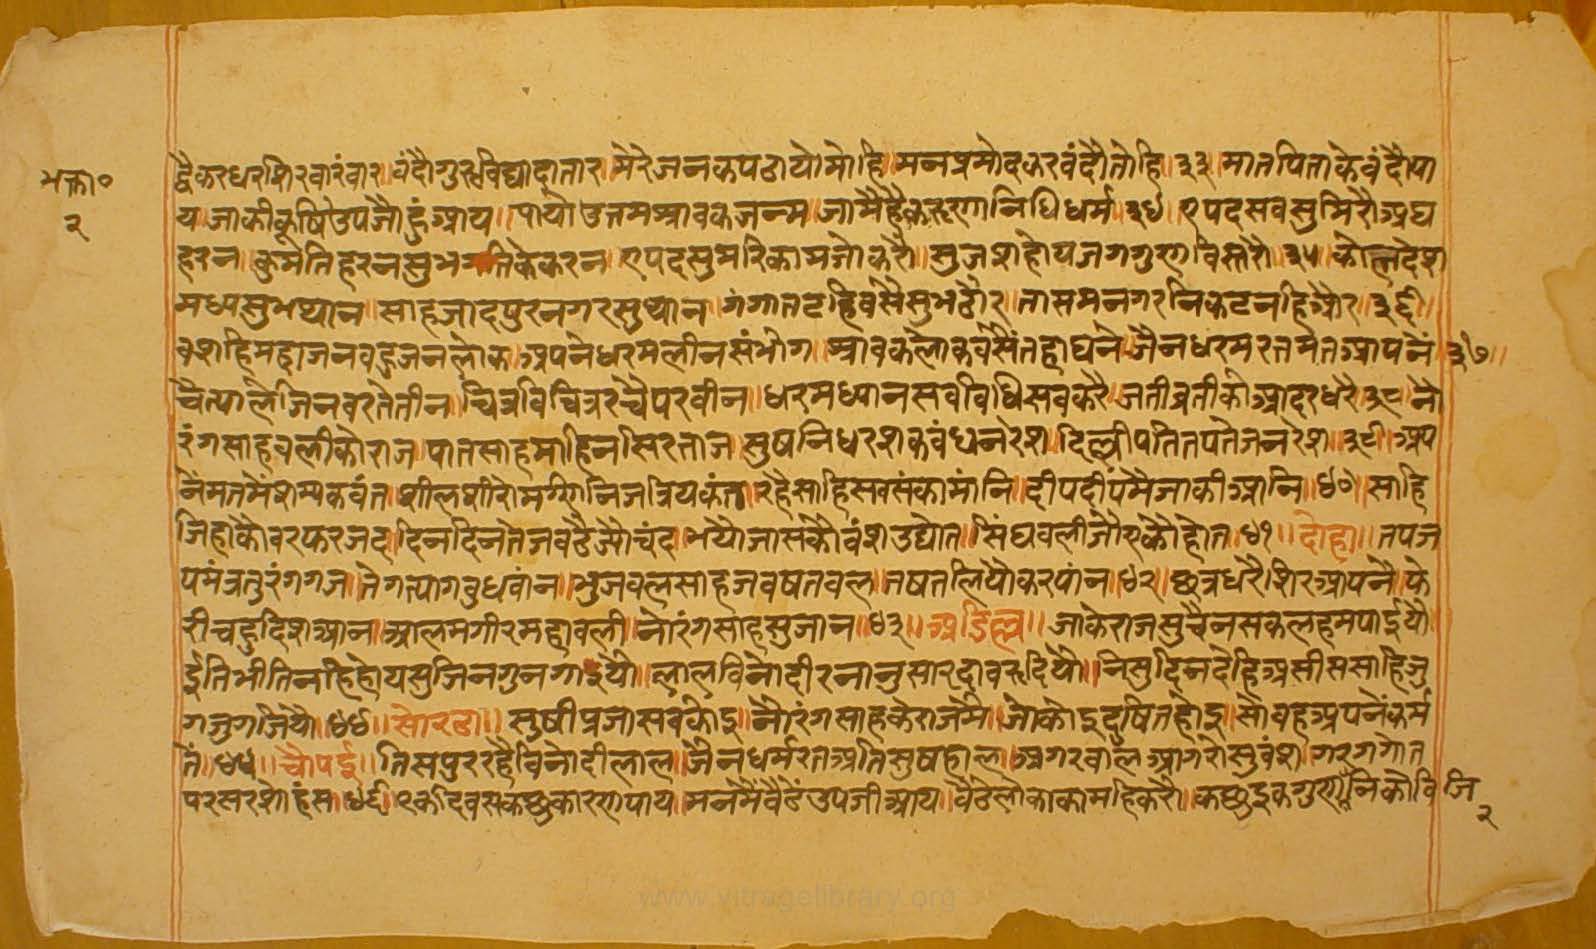 भक्ता०
२
द्वैकरधरशिरवारंवार॥वंदौगुरुविद्यादातार॥मेरेजनकपठायोमोहि॥मनप्रमोदकरवंदौतोहि॥३३॥मातपिताकेवंदौपा
य॥जाकीकूषिउपजौहुंआय॥पायौउत्तमश्रावकजन्म॥जामैहैकरुणानिधिधर्म॥३४॥एपदसवसुमिरौअघ
हरन॥कुमतिहरनसुभगतिकेकरन॥एपदसुमरिकामजोकरौ॥सुजशहोयजगगुणविस्तरौ॥३५॥कौशलदेश
मध्यसुभथान॥साहजादपुरनगरसुथान॥गंगातटहिवसैसुभठौर॥तासमनगरनिकटनहिऔर॥३६॥
वशहिमहाजनवहुजनलोक॥अपनेधरमलीनसंभोग॥श्रावकलोकवसेंतहाघने॥जैनधरमरतमतआपनें॥३७॥
चैत्यालैजिनवरतेतीन॥चित्रविचित्ररचेपरवीन॥धरमध्यानसर्वविधिसवकरै॥जतीव्रतीकोआदरधरै॥३८॥नौ
रंगसाहवलीकोराज॥पातसाहमाहिनसिरताज॥सुषनिधरशकवंधनरेश॥दिल्लीपतितपतेजनरेश॥३९॥अप
नेंमतमेंशम्यकवंत॥शीलशीरोमणिनिजत्रियकंत॥रहैसाहिसवसंकामांनि॥दीपदीपमैजाकीआनि॥४०॥साहि
जिहाकौवरफरजंद॥दिनदिनतेजवढैज्यौचंद॥भयौजासकौवंशउद्योत॥सिंघवलीजौएकौहोत॥४१॥दोहा॥तपज
पमंत्रतुरंगगज॥तेगत्यागवुधवांन॥भुजवलसाहजवषतवल॥तषतलियौकरपांन॥४२॥छत्रधरैशिरआपनै॥फे
रीचहुदिशआन॥आलमगीरमहावली॥नोरंगसाहसुजान॥४३॥अडिल्ल॥जाकेराजसुचैनसकलहमपाईयौ॥
ईतिभीतिनहिहोयसुजिनगुनगाईयो॥लालविनोदीरनानुसारदावरुदियौ॥निसुदिनदेहिअसीससाहिजु
गजुगजियौ॥४४॥सोरठा॥सुषीप्रजासवकोइ॥नौरंगसाहकेराजमै॥जोकोइदुषितहोइ॥सोवहअपनेंकर्म
तें॥४५॥चौपई॥तिसपुररहैविनोदीलाल॥जैनधर्मरतअतिसुषहाल॥अगरवालआगरोसुवंश॥गरगगोत
परसरशोहंस॥४६॥एकदिवसकछुकारणपाय॥मनमैवैठेंउपजीआय॥वैठेलोकाकामहिकरौ॥कछुइकगुणँनिकौविजि
२